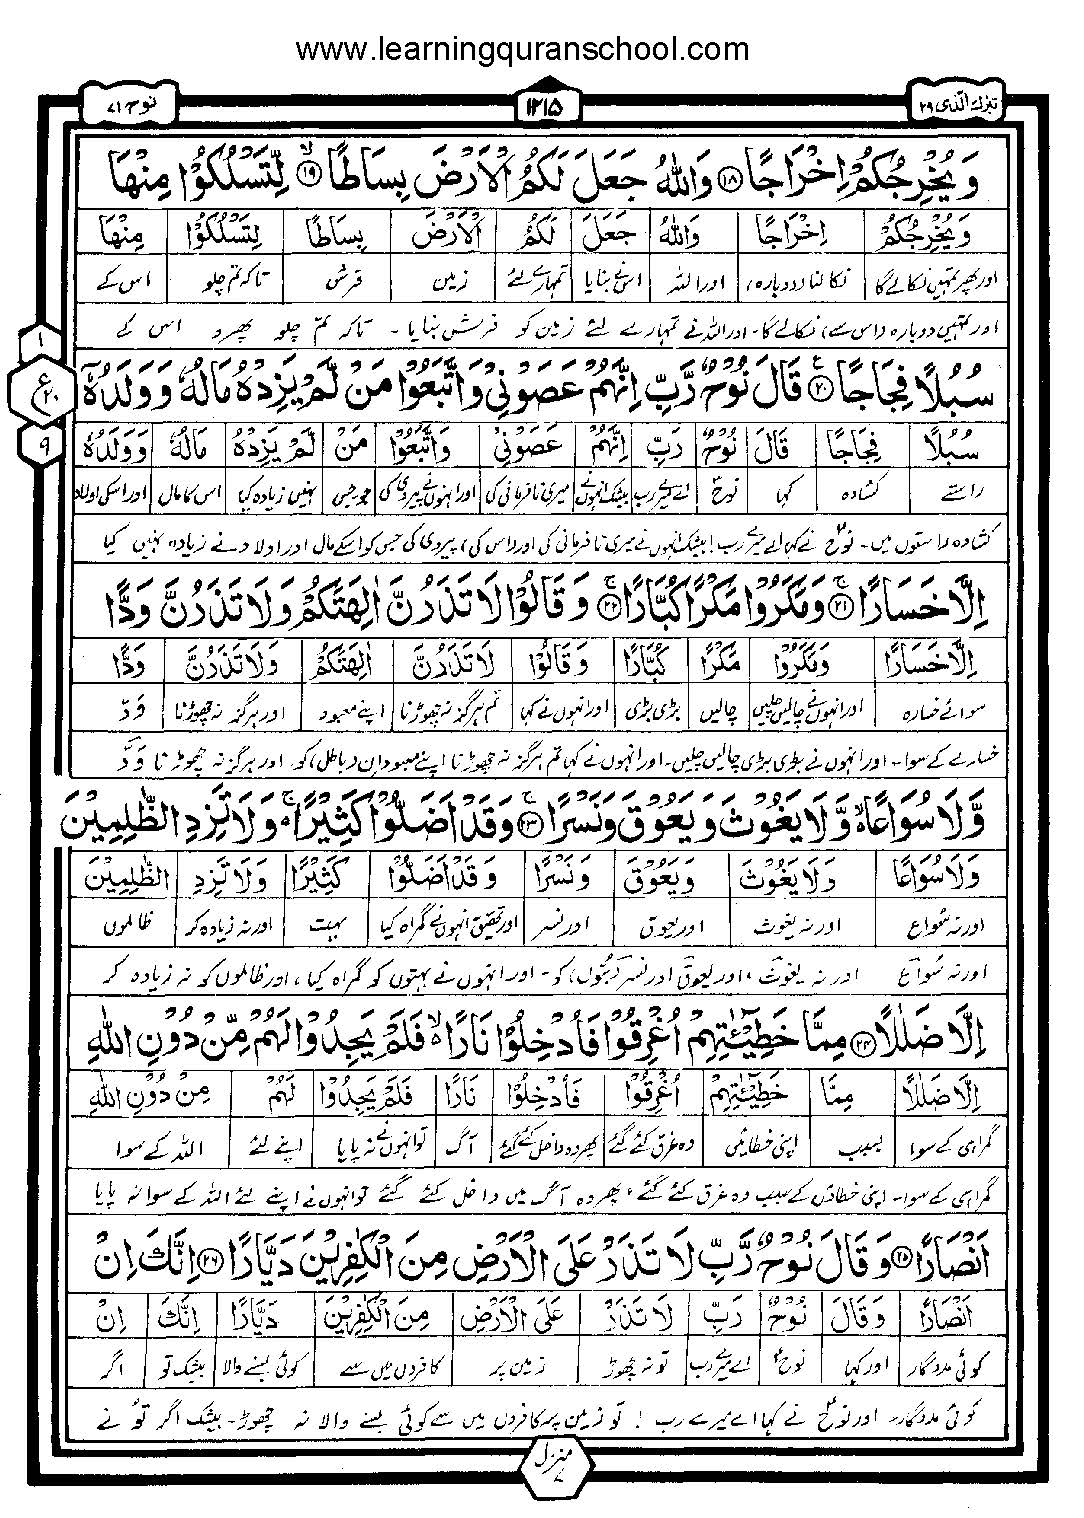 www.learningquranschool.com
تبٰرك الّذى ۲۹
۱۲۱۵
نوح ۷۱
وَيُخْرِجُكُمْ اِخْرَاجًا ۱۸ وَاللّٰهُ جَعَلَ لَكُمُ الْاَرْضَ بِسَاطًا ۱۹ لِّتَسْلُكُوْا مِنْهَا
وَيُخْرِجُكُمْ اِخْرَاجًا وَاللّٰهُ جَعَلَ لَكُمُ الْاَرْضَ بِسَاطًا لِّتَسْلُكُوْا مِنْهَا
اور پھر تمہیں نکالے گا نکالنا (دوبارہ) اور اللہ اس نے بنایا تمہارے لئے زمین فرش تاکہ تم چلو اس کے
اور تمہیں دوبارہ (اس سے) نکالے گا۔ اور اللہ نے تمہارے لئے زمین کو فرش بنایا ۔ تاکہ تم چلو پھرو اس کے
۱
ع ۲۰
۹
سُبُلًا فِجَاجًا ۲۰ قَالَ نُوْحٌ رَّبِّ اِنَّهُمْ عَصَوْنِيْ وَاتَّبَعُوْا مَنْ لَّمْ يَزِدْهُ مَالُهٗ وَوَلَدُهٗٓ
سُبُلًا فِجَاجًا قَالَ نُوْحٌ رَبِّ اِنَّهُمْ عَصَوْنِيْ وَاتَّبَعُوْا مَنْ لَّمْ يَزِدْهُ مَالُهٗ وَوَلَدُهٗ
راستے کشادہ کہا نوحؑ اے میرے رب بیشک انہوں نے میری نافرمانی کی اور انہوں نے پیروی کی جو۔جس نہیں زیادہ کیا اس کا مال اور اسکی اولاد
کشادہ راستوں میں۔ نوحؑ نے کہا اے میرے رب! بیشک انہوں نے میری نافرمانی کی اور (اس کی) پیروی کی جس کو اسکے مال اور اولاد نے زیادہ نہیں کیا
اِلَّا خَسَارًا ۲۱ وَمَكَرُوْا مَكْرًا كُبَّارًا ۲۲ وَقَالُوْا لَا تَذَرُنَّ اٰلِهَتَكُمْ وَلَا تَذَرُنَّ وَدًّا
اِلَّا خَسَارًا وَمَكَرُوْا مَكْرًا كُبَّارًا وَقَالُوْا لَا تَذَرُنَّ اٰلِهَتَكُمْ وَلَا تَذَرُنَّ وَدًّا
سوائے خسارہ اور انہوں نے چالیں چلیں چالیں بڑی بڑی اور انہوں نے کہا تم ہرگز نہ چھوڑنا اپنے معبود اور ہرگز نہ چھوڑنا وَدّ
خسارے کے سوا۔ اور انہوں نے بڑی بڑی چالیں چلیں۔ اور انہوں نے کہا تم ہرگز نہ چھوڑنا اپنے معبودان (باطل) کو اور ہرگز نہ چھوڑنا وَدّ
وَّلَا سُوَاعًا وَّلَا يَغُوْثَ وَيَعُوْقَ وَنَسْرًا ۲۳ وَقَدْ اَضَلُّوْا كَثِيْرًا وَلَا تَزِدِ الظّٰلِمِيْنَ
وَلَا سُوَاعًا وَلَا يَغُوْثَ وَيَعُوْقَ وَنَسْرًا وَقَدْ اَضَلُّوْا كَثِيْرًا وَلَا تَزِدِ الظّٰلِمِيْنَ
اور نہ سُواع اور نہ یغوث اور یعوق اور نسر اور تحقیق انہوں نے گمراہ کیا بہت اور نہ زیادہ کر ظالموں
اور نہ سُواع اور نہ یغوث، اور یعوق اور نسر (بتوں) کو۔ اور انہوں نے بہتوں کو گمراہ کیا، اور ظالموں کو نہ زیادہ کر
اِلَّا ضَلٰلًا ۲۴ مِمَّا خَطِيْٓـٰٔتِهِمْ اُغْرِقُوْا فَاُدْخِلُوْا نَارًا فَلَمْ يَجِدُوْا لَهُمْ مِّنْ دُوْنِ اللّٰهِ
اِلَّا ضَلٰلًا مِمَّا خَطِيْٓـٰٔتِهِمْ اُغْرِقُوْا فَاُدْخِلُوْا نَارًا فَلَمْ يَجِدُوْا لَهُمْ مِنْ دُوْنِ اللّٰهِ
گمراہی کے سوا بسبب اپنی خطائیں وہ غرق کئے گئے پھر وہ داخل کئے گئے آگ تو انہوں نے نہ پایا اپنے لئے اللہ کے سوا
گمراہی کے سوا۔ اپنی خطاؤں کے سبب وہ غرق کئے گئے، پھر وہ آگ میں داخل کئے گئے تو انہوں نے اپنے لئے اللہ کے سوا نہ پایا
اَنْصَارًا ۲۵ وَقَالَ نُوْحٌ رَّبِّ لَا تَذَرْ عَلَى الْاَرْضِ مِنَ الْكٰفِرِيْنَ دَيَّارًا ۲۶ اِنَّكَ اِنْ
اَنْصَارًا وَقَالَ نُوْحٌ رَبِّ لَا تَذَرْ عَلَى الْاَرْضِ مِنَ الْكٰفِرِيْنَ دَيَّارًا اِنَّكَ اِنْ
کوئی مددگار اور کہا نوحؑ اے میرے رب تو نہ چھوڑ زمین پر کافروں میں سے کوئی بسنے والا بیشک تو اگر
کوئی مددگار۔ اور نوحؑ نے کہا اے میرے رب ! تو زمین پر کافروں میں سے کوئی بسنے والا نہ چھوڑ۔ بیشک اگر تُو نے
منزل ۷